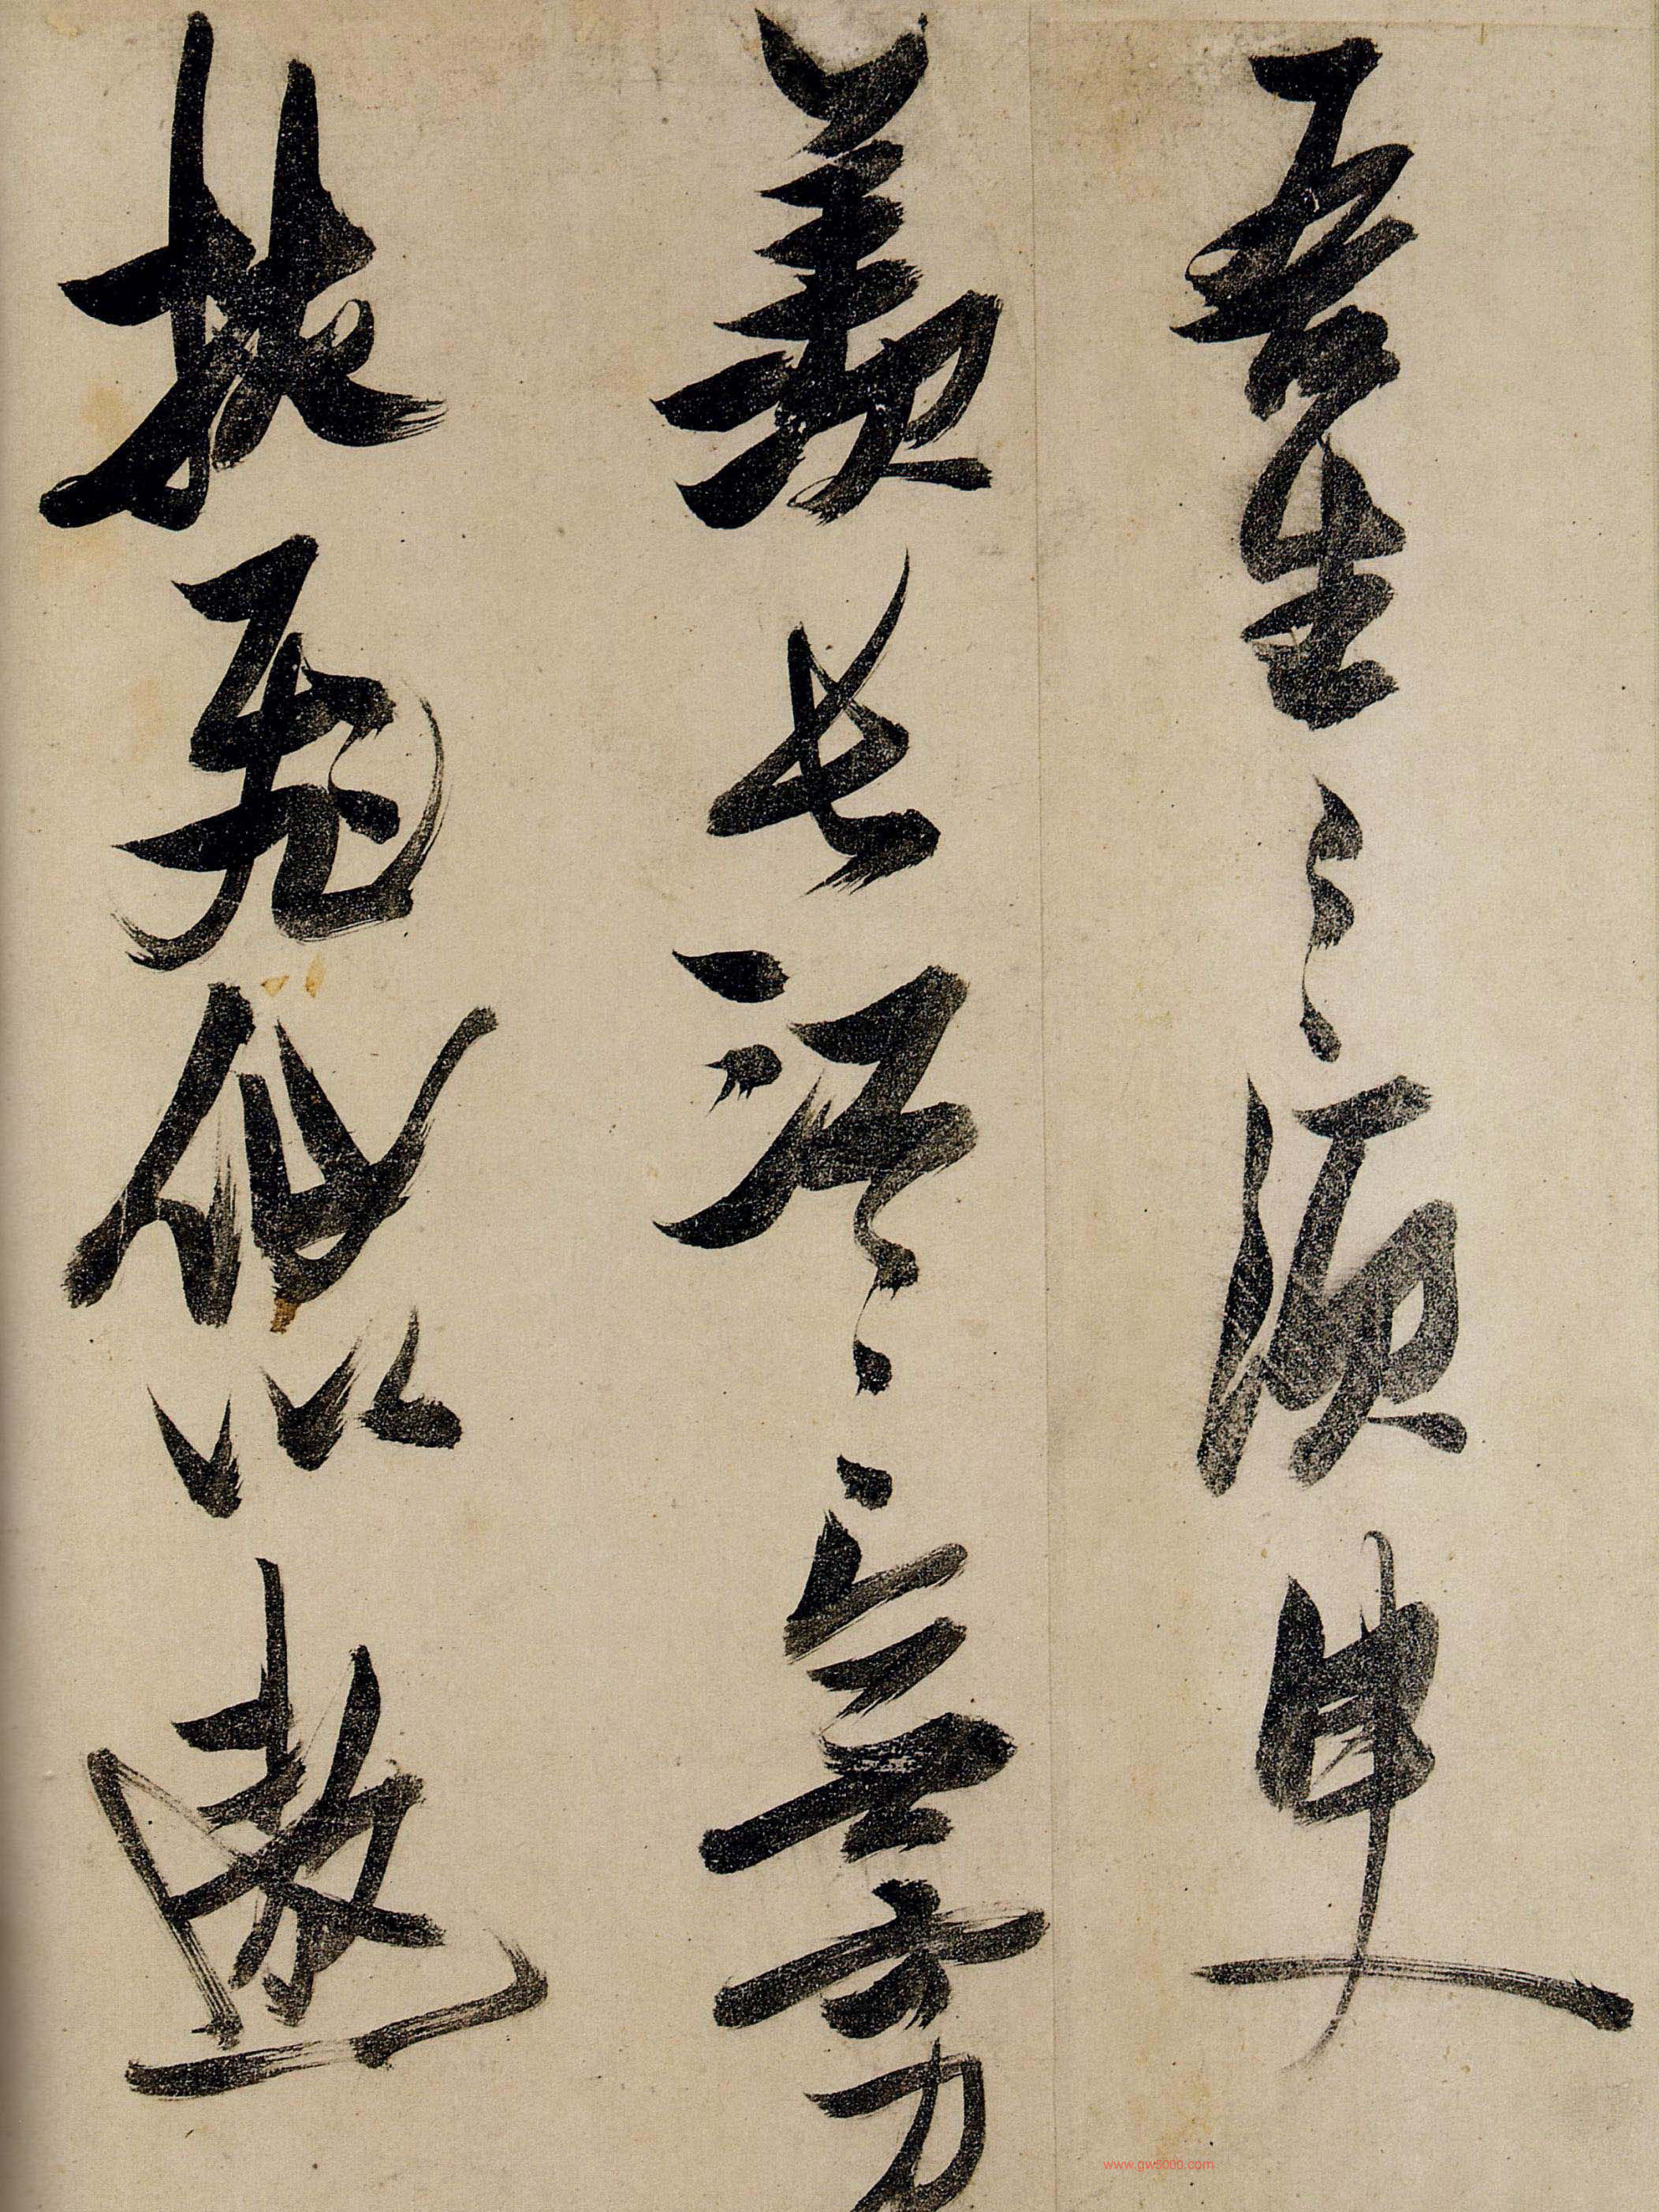 吾生之須臾
羨長江之無窮
挾飛仙以遨
www.gw5000.com